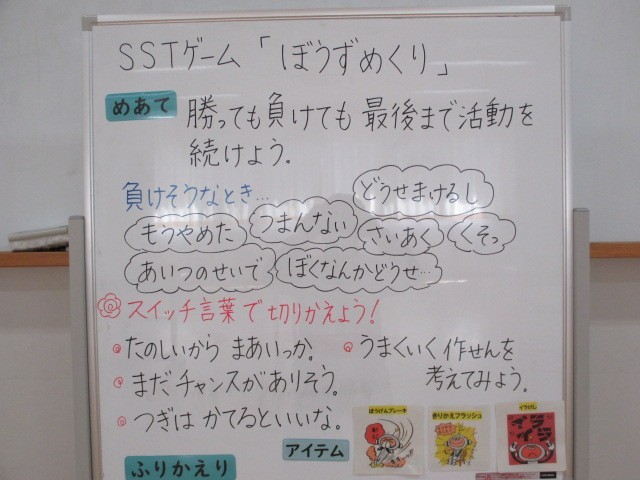 SSTゲーム「ぼうずめくり」
めあて
勝っても負けても最後まで活動を
続けよう。
負けそうなとき…
どうせまけるし
もうやめた
うまんない
さいあく
くそっ
あいつのせいで
ぼくなんかどうせ…
スイッチ言葉で切りかえよう!
たのしいから まあいっか。
うまくいく作せんを
考えてみよう。
まだチャンスがありそう。
つぎは かてるといいな。
アイテム
ぼうげんブレーキ
きりかえフラッシュ
イラけし
イライラ
ふりかえり